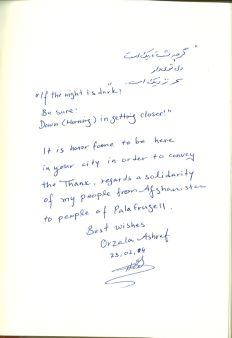 "If the night is dark,
Be sure.
Down (Morning) in getting closer!"
It is honor for me to be here
in your city in order to convey
the Thank, regards a solidarity
of my people from Afghanistan
to people of Palafrugell.
Best wishes
Orzala Ashref
23.02.04